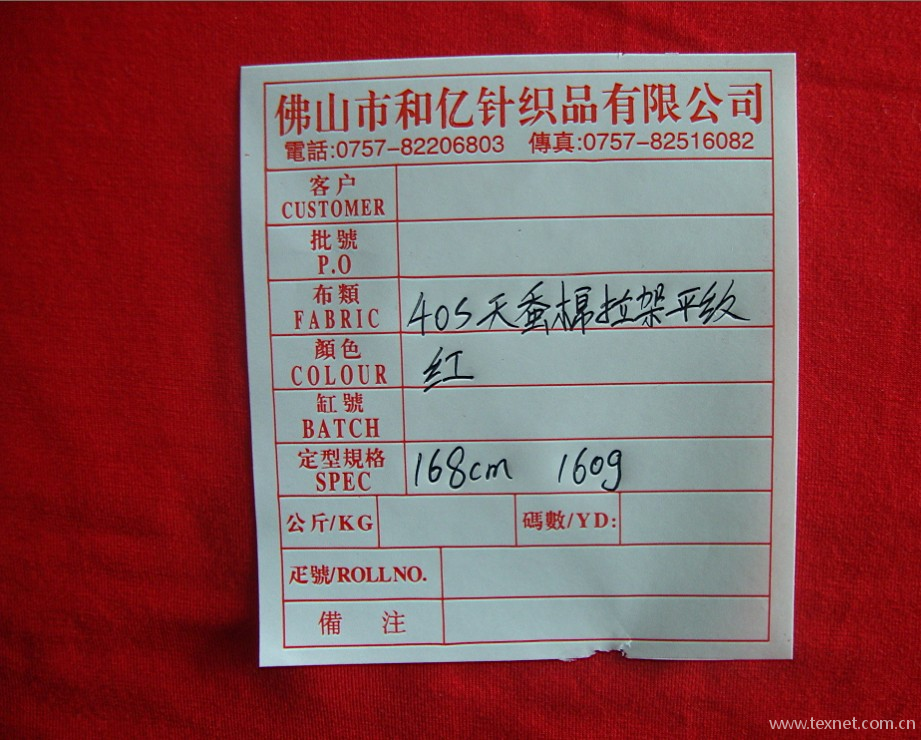 佛山市和亿针织品有限公司
電話:0757-82206803 傳真:0757-82516082
客户
CUSTOMER
批號
P.O
布類
FABRIC
40S天蚕棉拉架平纹
顏色
COLOUR
红
缸號
BATCH
定型規格
SPEC
168cm 160g
公斤/KG 碼數/YD:
疋號/ROLL NO.
備 注
www.texnet.com.cn